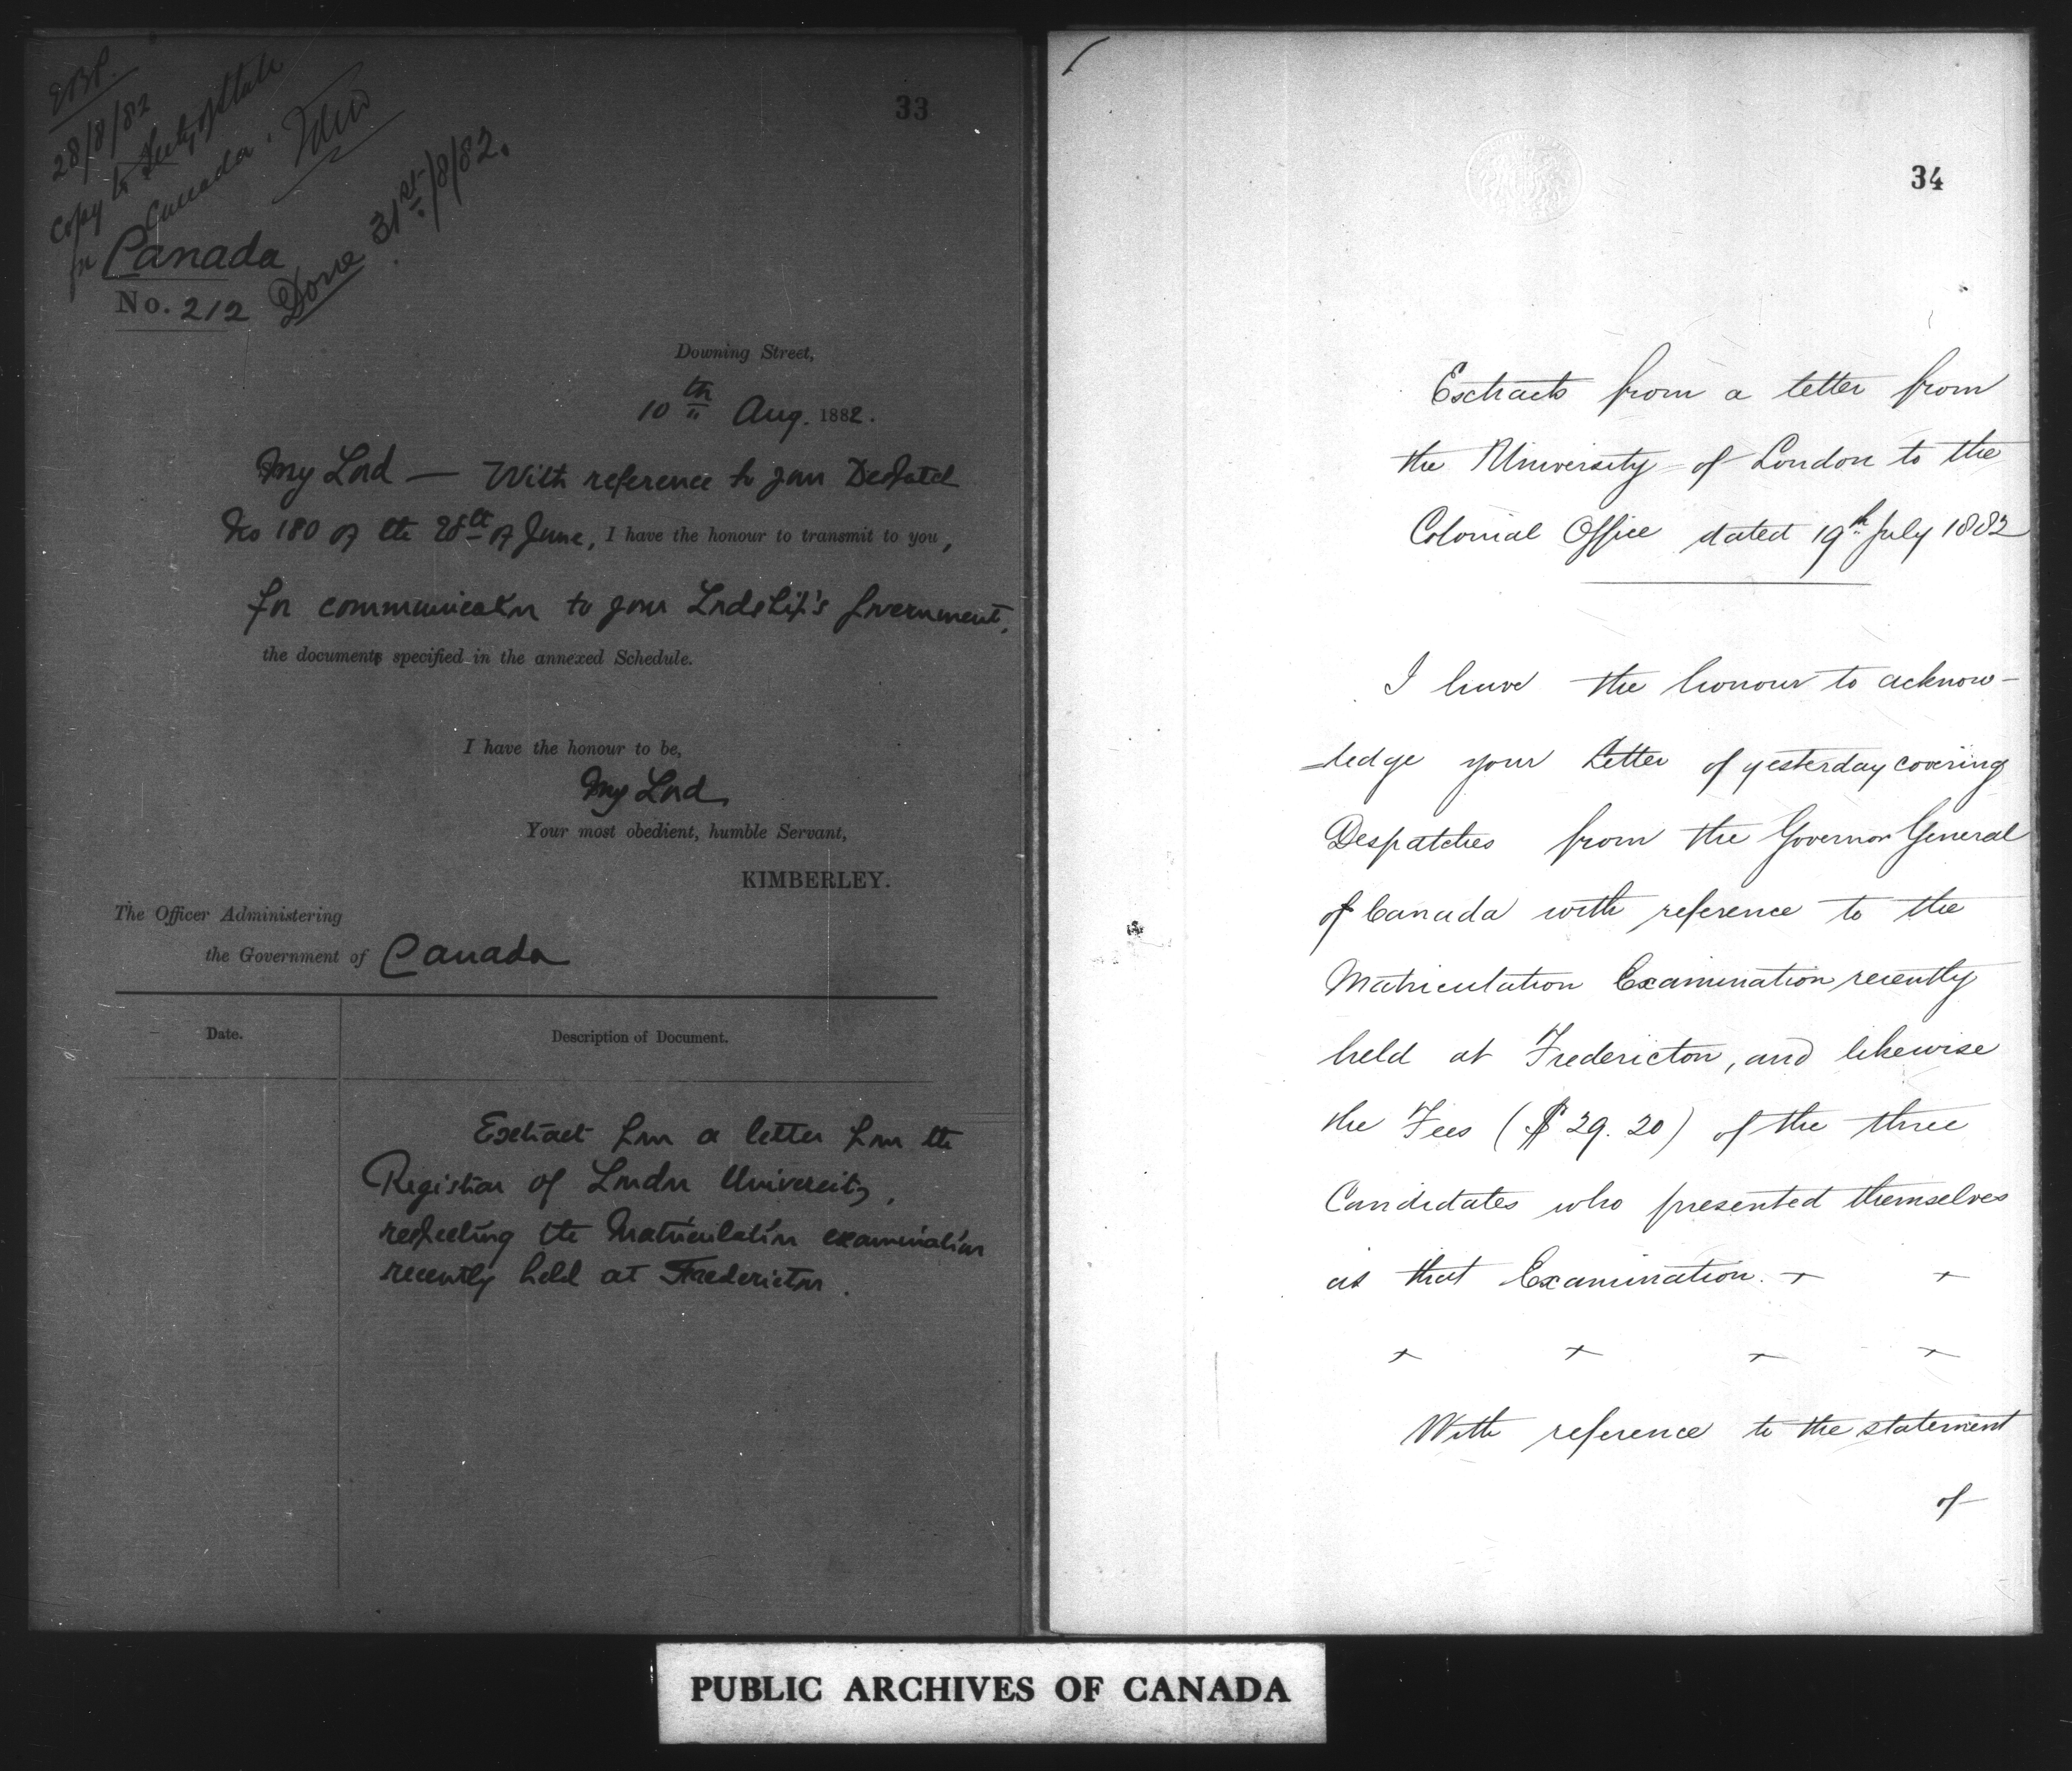 33
28/8/82
Copy to Secty of State
for Canada.
Done 31st/8/82.
Canada
No. 212
Downing Street,
10th Aug. 1882.
My Lord — With reference to your Despatch
No 180 of the 28th of June, I have the honour to transmit to you,
for communication to your Lordship's Government,
the documents specified in the annexed Schedule.
I have the honour to be,
My Lord
Your most obedient, humble Servant,
KIMBERLEY.
The Officer Administering
the Government of Canada
Date.
Description of Document.
Extract from a letter from the
Registrar of London University,
respecting the Matriculation examination
recently held at Fredericton.
34
Extracts from a letter from
the University of London to the
Colonial Office dated 19th July 1882
I have the honour to acknow-
-ledge your Letter of yesterday covering
Despatches from the Governor General
of Canada with reference to the
Matriculation Examination recently
held at Fredericton, and likewise
the Fees ($29.20) of the three
Candidates who presented themselves
at that Examination. + +
+ + + +
With reference to the statement
of
PUBLIC ARCHIVES OF CANADA